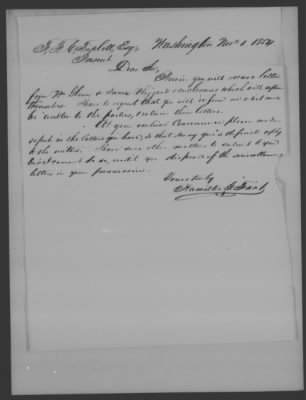 F. F. C. Triplett, Esq. Washington Nov. 1. 1854
Present.
Dear Sir,
Herein you will receive letters
from Wm. & James enclosures which will explain
themselves. I have to request that you will inform me what must
be written to the parties, & return their letters.
At your earliest Convenience please make
reports in the letters you have, so that I may give a definite reply
to the writers. I have some other matters to submit to you
but cannot do so, until you dispose of the miscellaneous
letters in your possession.
Yours truly
Hamilton G. Fant